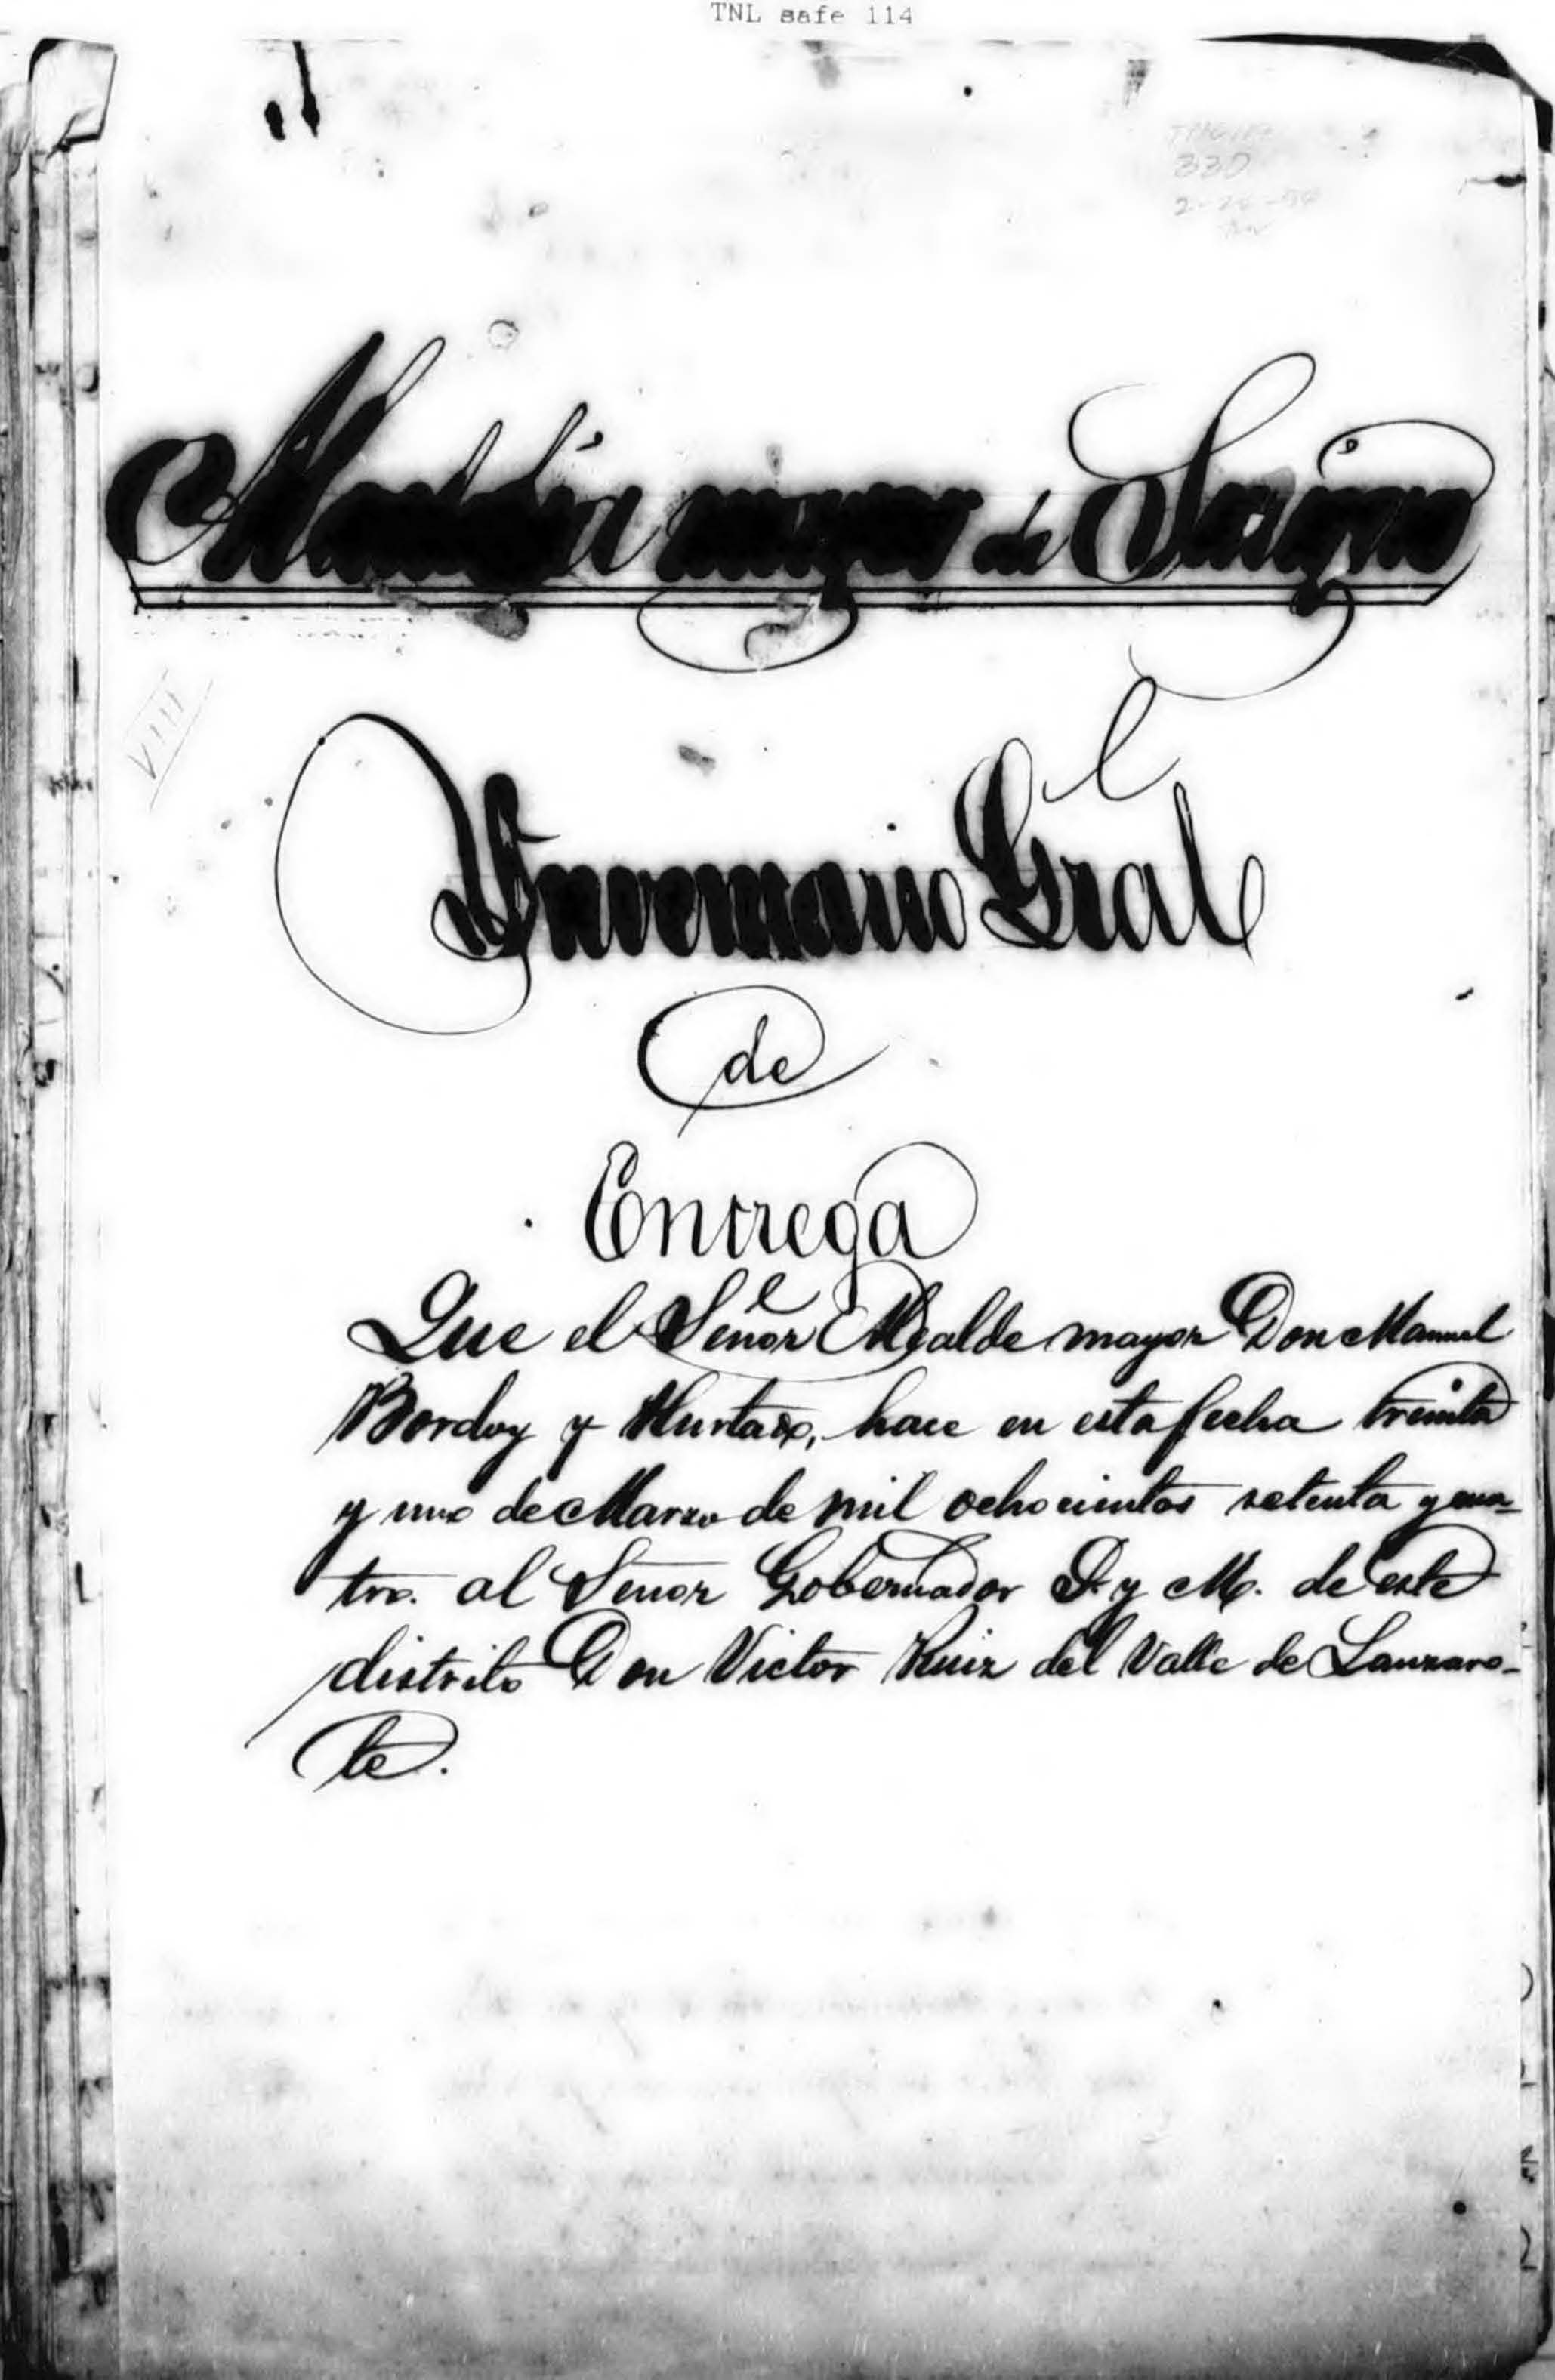 TNL safe 114
330
Alcaldía mayor de Surigao
VIII
Inventario Gral
de
Entrega
Que el Señor Alcalde mayor Don Manuel
Bordoy y Hurtado, hace en esta fecha treinta
y uno de Marzo de mil ochocientos setenta y cua-
tro. al Señor Gobernador P. y M. de este
distrito Don Victor Ruiz del Valle de Lanzaro-
te.